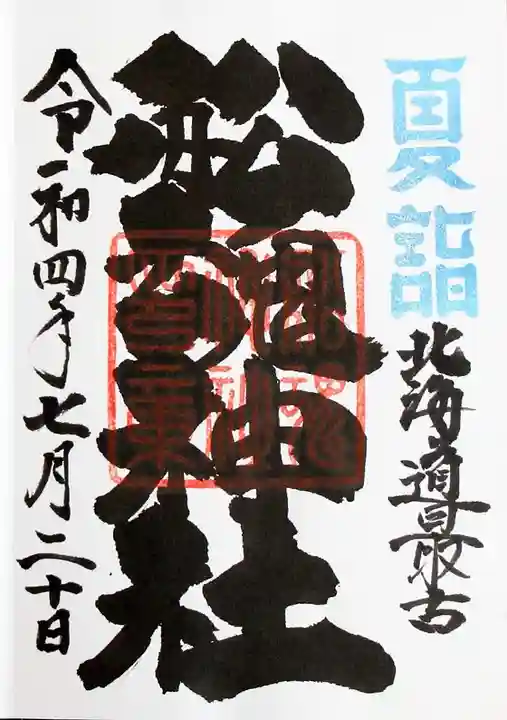 夏詣
北海道最古
船魂神社
令和四年七月二十日